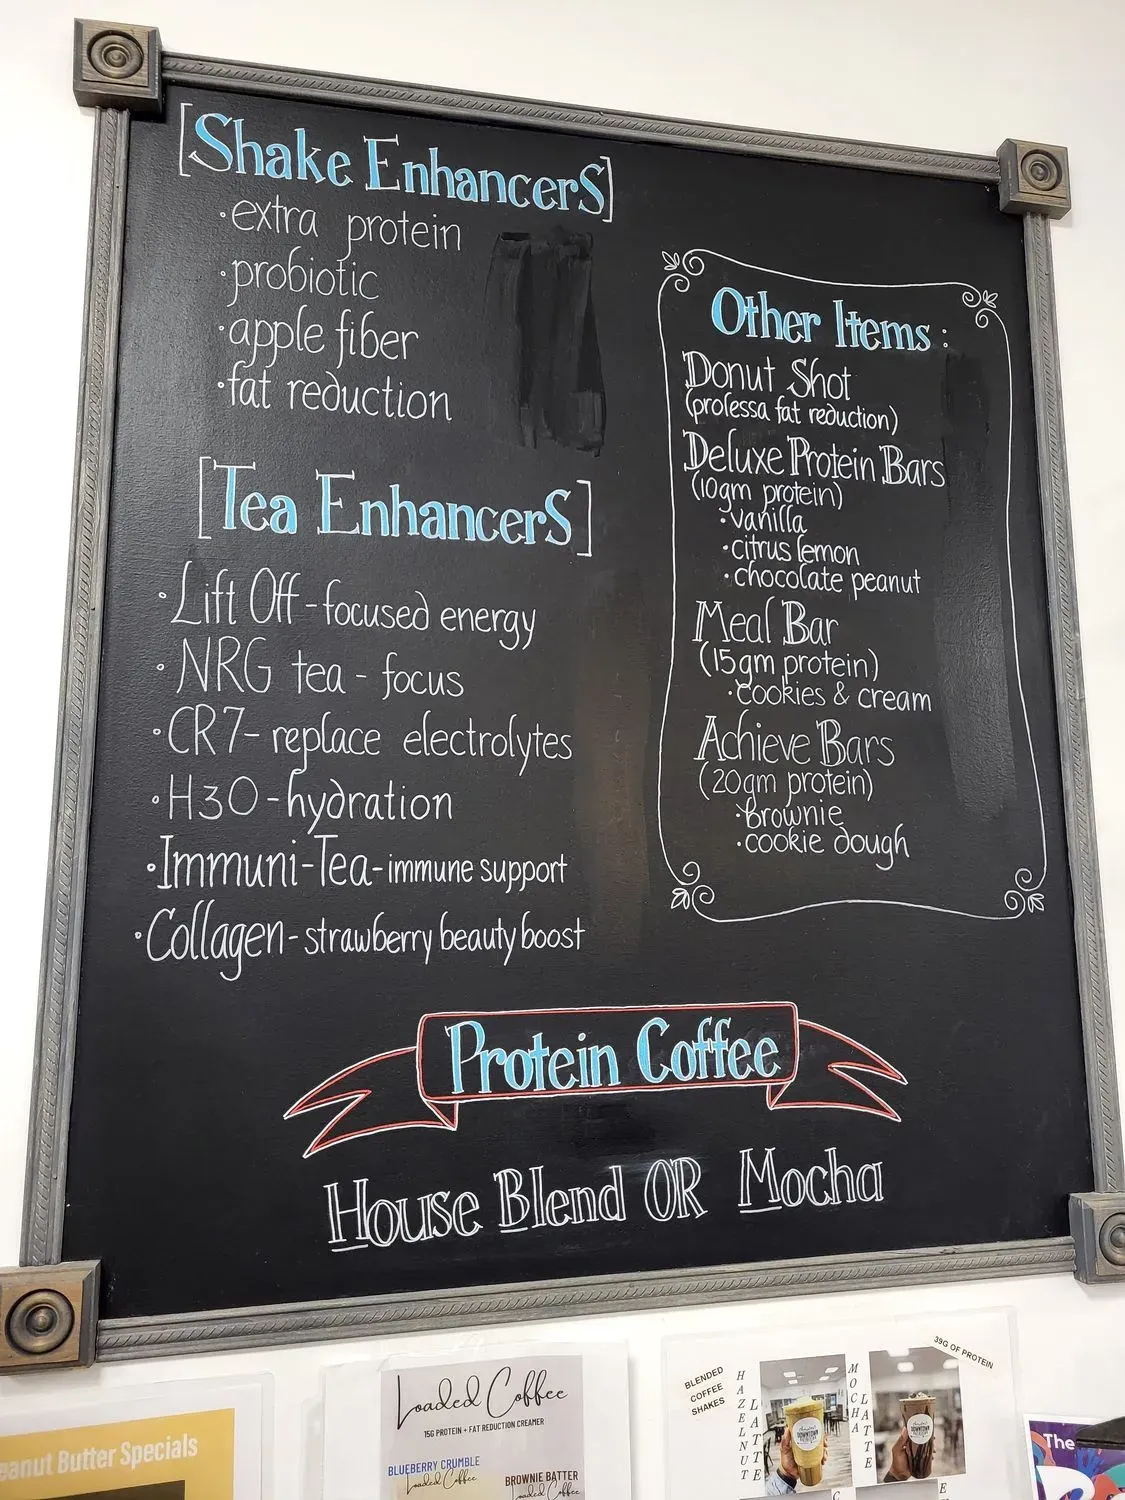 [Shake EnhancerS]
·extra protein
·probiotic
·apple fiber
·fat reduction
[Tea EnhancerS]
·Lift Off-focused energy
·NRG tea - focus
·CR7- replace electrolytes
·H3O-hydration
·Immuni-Tea-immune support
·Collagen-strawberry beauty boost
Other Items:
Donut Shot
(professa fat reduction)
Deluxe Protein Bars
(10gm protein)
·vanilla
·citrus lemon
·chocolate peanut
Meal Bar
(15gm protein)
·cookies & cream
Achieve Bars
(20gm protein)
·brownie
·cookie dough
Protein Coffee
House Blend OR Mocha
Peanut Butter Specials
Loaded Coffee
15G PROTEIN + FAT REDUCTION CREAMER
BLUEBERRY CRUMBLE
Loaded Coffee
BROWNIE BATTER
Loaded Coffee
BLENDED
COFFEE
SHAKES
HAZELNUT
LATTE
MOCHA
LATTE
39G OF PROTEIN
DOWNTOWN
DOWNTOWN
The